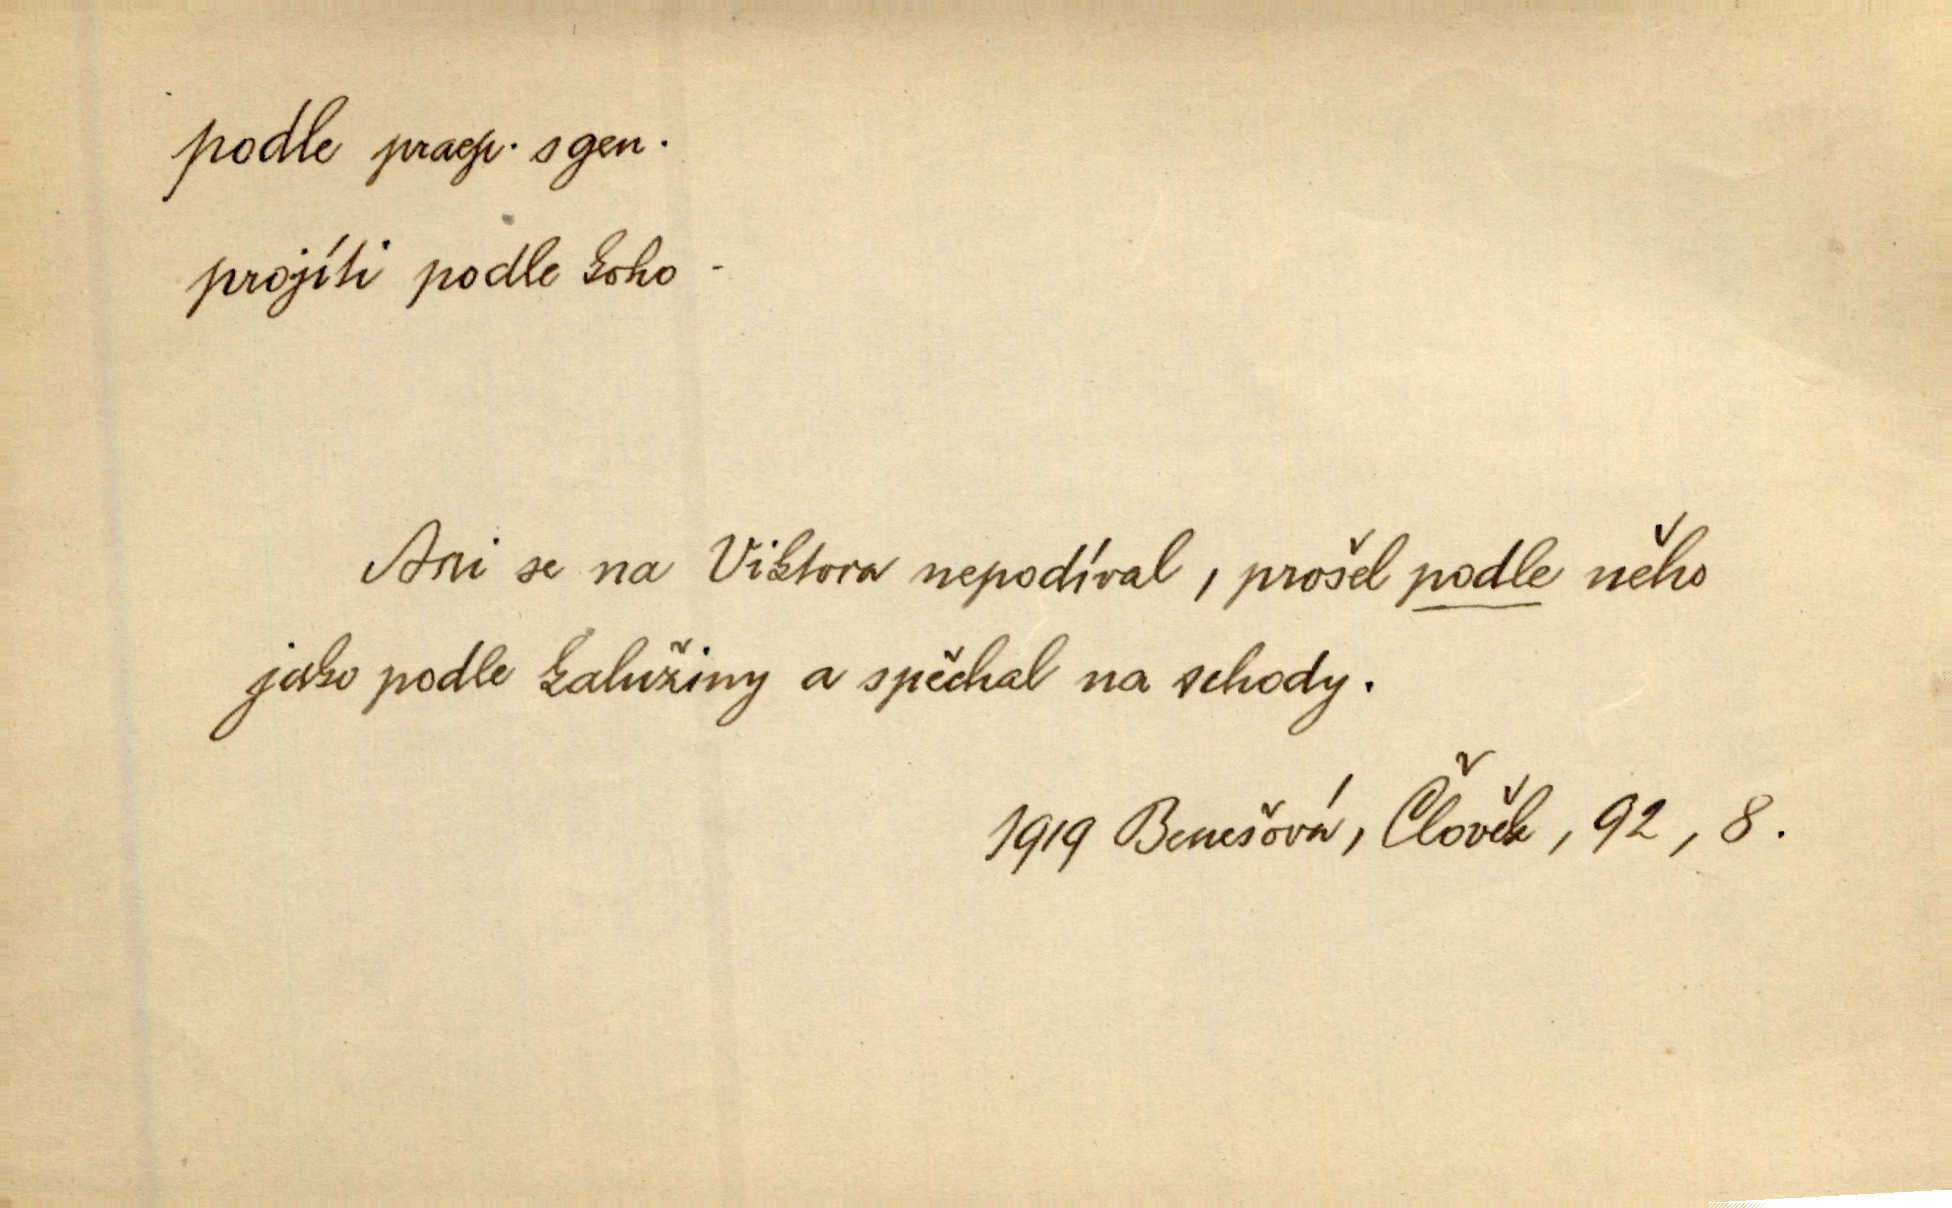 podle praep. s gen.
projíti podle koho -
Ani se na Viktora nepodíval, prošel podle něho
jako podle kalužiny a spěchal na schody.
1919 Benešová, Člověk, 92, 8.